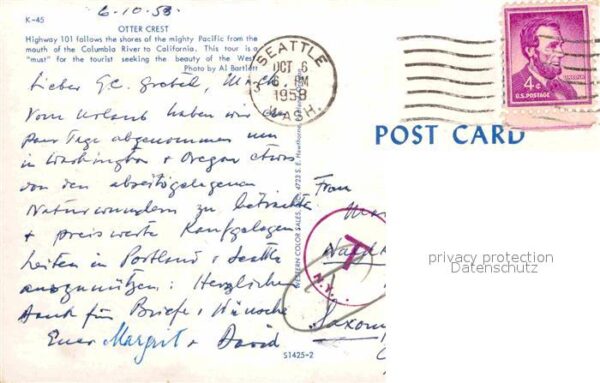 6.10.58
K-45
OTTER CREST
Highway 101 follows the shores of the mighty Pacific from the
mouth of the Columbia River to California. This tour is a
"must" for the tourist seeking the beauty of the West
Photo by Al Bartlett
SEATTLE
OCT 6
PM
1958
WASH.
4¢
U.S. POSTAGE
POST CARD
Lieber G.C. Gretel,
Vom Urlaub haben wir ein
paar Tage abgenommen um
in Washington + Oregon etwas
von den abseitsgelegenen
Naturwundern zu betrachten
+ preiswerte Kaufgelegen
heiten in Portland + Seattle
auszunützen: Herzlichen
Dank für Briefe + Wünsche
Euer Margrit + David
From
T
N.Y.
WESTERN COLOR SALES, 4723 S. E. Hawthorne
S1425-2
privacy protection
Datenschutz